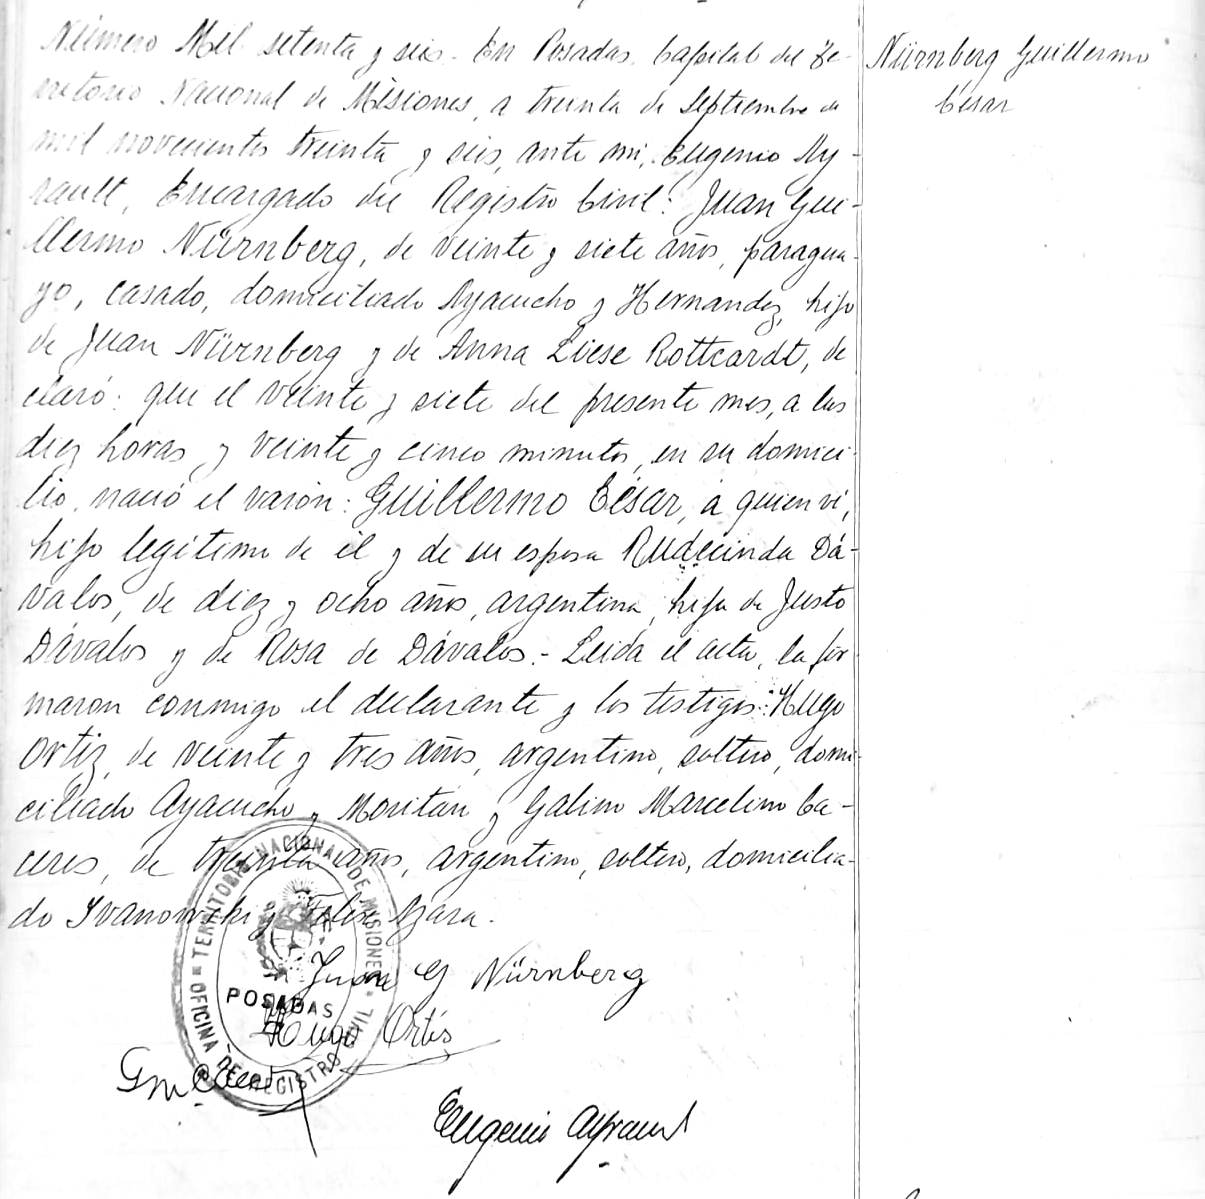 Número Mil setenta y seis. En Posadas, Capital del Te-
rritorio Nacional de Misiones, a treinta de Septiembre de
mil novecientos treinta y seis, ante mi, Eugenio Ay-
rault, Encargado del Registro Civil: Juan Gui-
llermo Nürnberg, de veinte y siete años, paragua-
yo, casado, domiciliado Ayacucho y Hernandez, hijo
de Juan Nürnberg y de Anna Liese Rottcardt, de
claró: que el veinte y siete del presente mes, a las
diez horas y veinte y cinco minutos, en su domici-
lio, nació el varón: Guillermo César, a quien vi,
hijo legítimo de él y de su esposa Rudecinda Dá-
valos, de diez y ocho años, argentina, hija de Justo
Dávalos y de Rosa de Dávalos.- Leida el acta, la fir-
maron conmigo el declarante y los testigos: Hugo
Ortiz, de veinte y tres años, argentino, soltero, domi-
ciliado Ayacucho y Moritán y Galino Marcelino Ca-
ceres, de treinta años, argentino, soltero, domicilia-
do Ivanowski y Felix Azara.
Nürnberg Guillermo
César
Juan G Nürnberg
Hugo Ortis
Eugenio Ayrault
OFICINA DE REGISTRO CIVIL = TERRITORIO NACIONAL DE MISIONES =
POSADAS